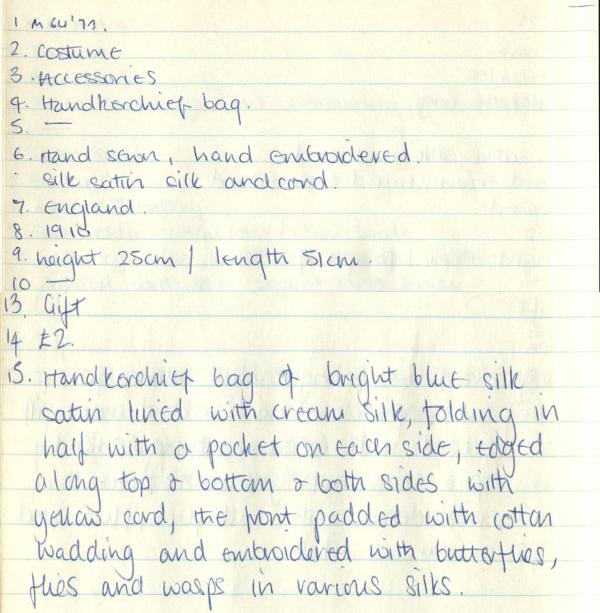 1 M 64'73.
2. Costume
3. Accessories
4. Handkerchief bag.
5. —
6. Hand sewn, hand embroidered.
silk satin silk and cord.
7. England.
8. 1910
9. height 25cm / length 51cm.
10 —
13. Gift
14 £2.
15. Handkerchief bag of bright blue silk
satin lined with cream silk, folding in
half with a pocket on each side, edged
along top & bottom & both sides with
yellow cord, the front padded with cotton
wadding and embroidered with butterflies,
flies and wasps in various silks.